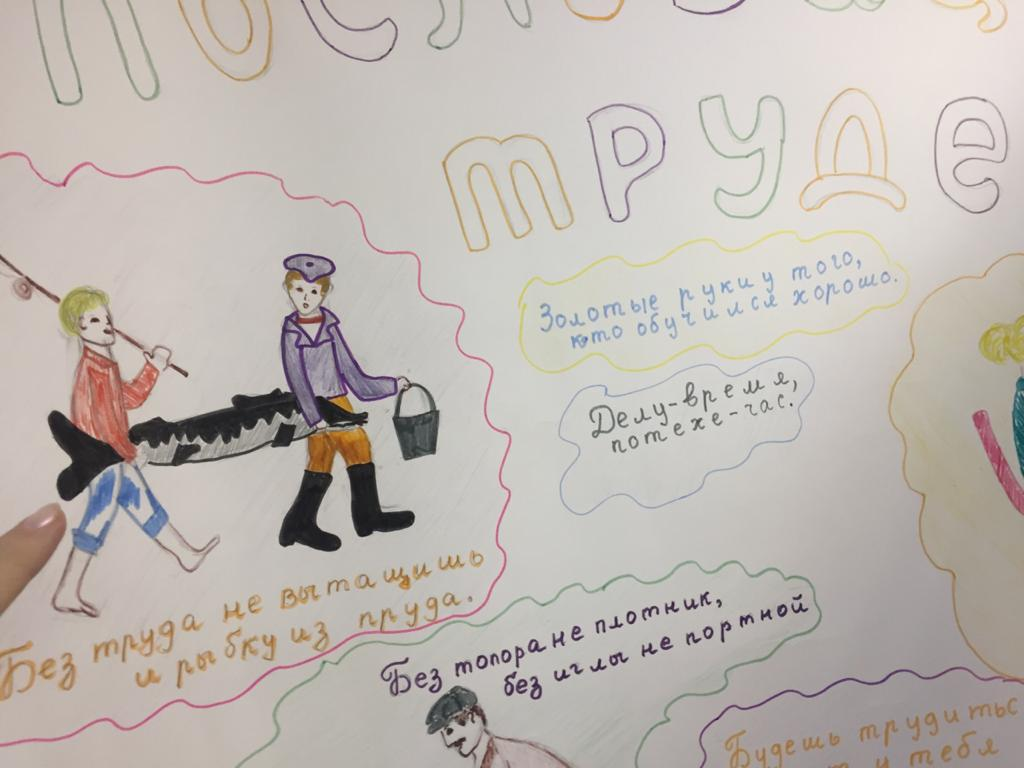 труде
Золотые руки у того,
кто обучился хорошо.
Делу-время,
потехе-час.
Без труда не вытащишь
и рыбку из пруда.
Без топора не плотник,
без иглы не портной
Будешь
у тебя